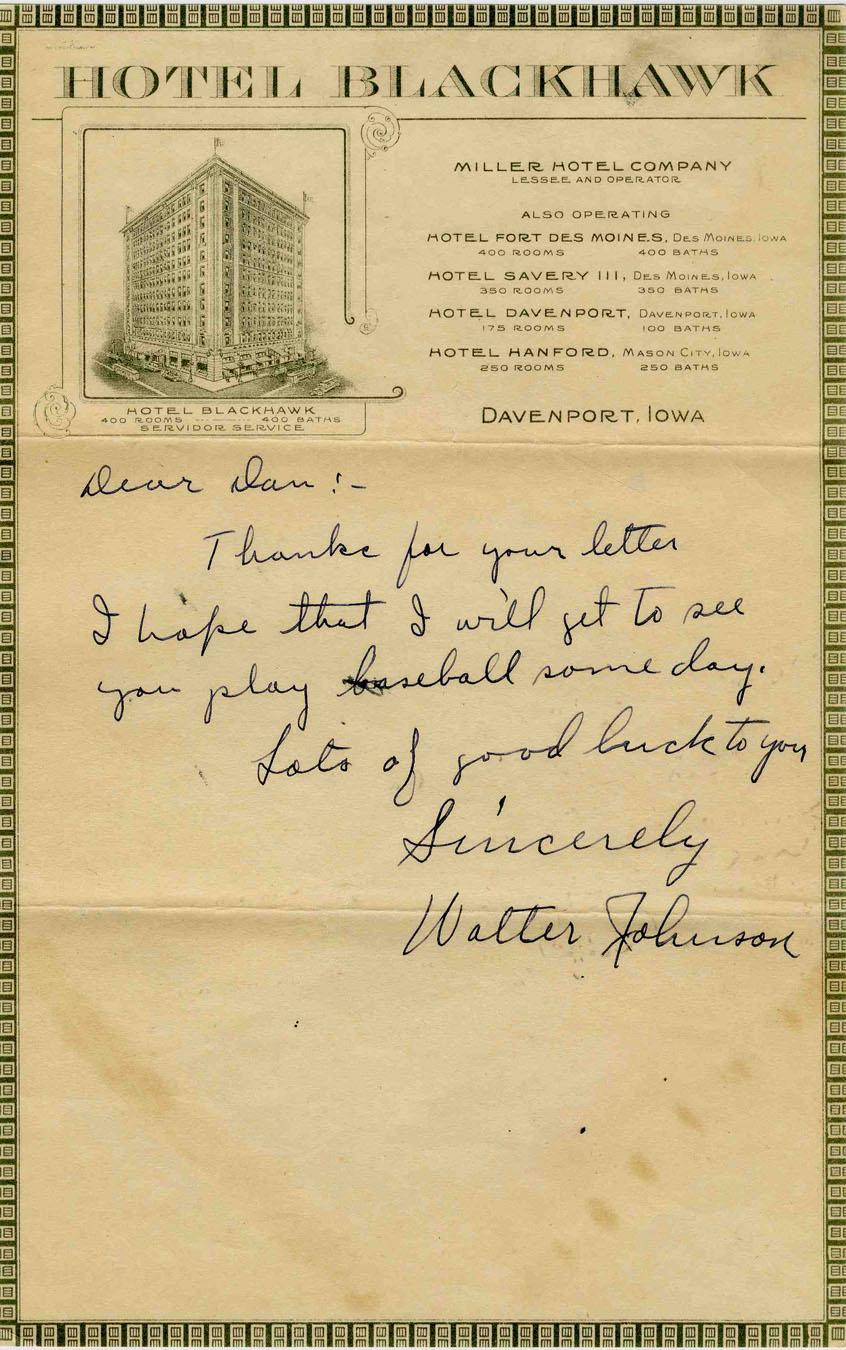 HOTEL BLACKHAWK
MILLER HOTEL COMPANY
LESSEE AND OPERATOR
ALSO OPERATING
HOTEL FORT DES MOINES, DES MOINES, IOWA
400 ROOMS 400 BATHS
HOTEL SAVERY III, DES MOINES, IOWA
350 ROOMS 350 BATHS
HOTEL DAVENPORT, DAVENPORT, IOWA
175 ROOMS 100 BATHS
HOTEL HANFORD, MASON CITY, IOWA
250 ROOMS 250 BATHS
HOTEL BLACKHAWK
400 ROOMS 400 BATHS
SERVIDOR SERVICE
DAVENPORT, IOWA
Dear Dan:-
Thanks for your letter
I hope that I will get to see
you play baseball some day.
Lots of good luck to you
Sincerely
Walter Johnson